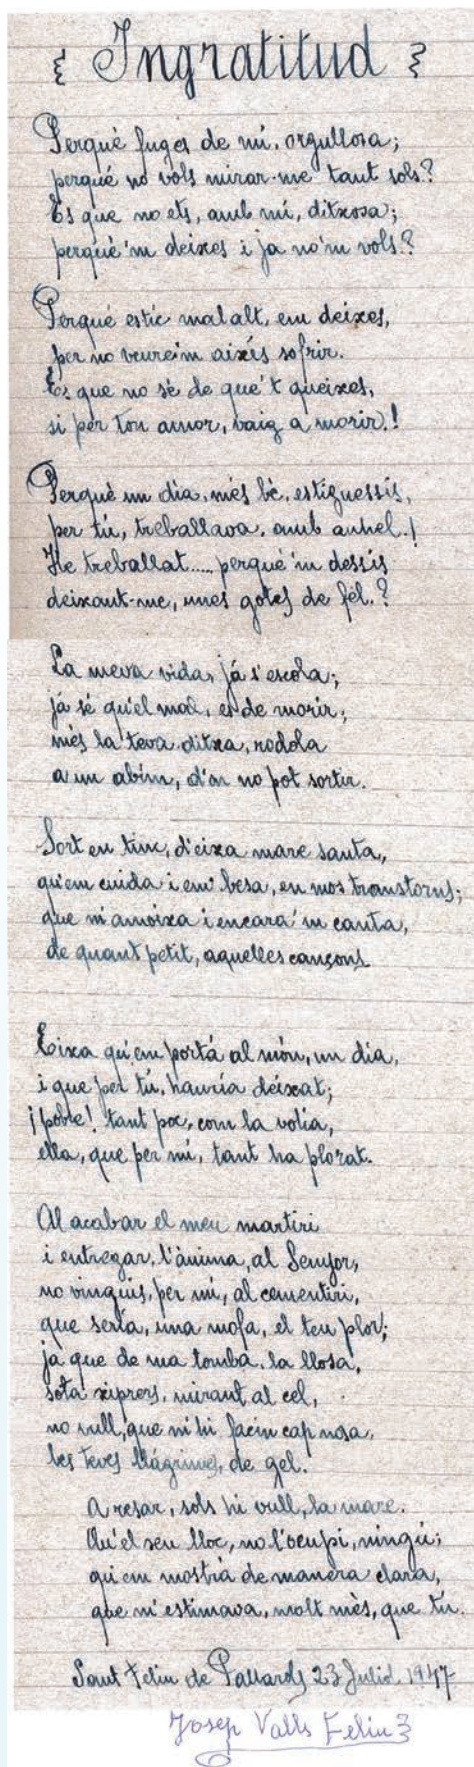 { Ingratitud }
Perqué fuges de mí, orgullosa;
perqué no vols mirar-me tant sols?
Es que no ets, amb mí, ditxosa;
perqué'm deixes i ja no'm vols?
Perqué estic malalt, em deixes,
per no veure'm aixís sofrir.
Es que no sé de que't queixes,
si per ton amor, vaig a morir.!
Perqué un dia, més bé, estiguessis,
per tú, treballava, amb anhel.!
He treballat..... perqué'm dessis
deixant-me, unes gotes de fél.?
La meva vida, já s'escola;
já sé qu'el mal, es de morir;
més la teva ditxa, rodola
a un abim, d'on no pot sortir.
Sort en tinc, d'eixa mare santa,
qu'em cuida i em besa, en mos transtorns;
que m'amoixa i encara'm canta,
de quant petit, aquelles cançons
Eixa qu'em portá al món, un dia,
i que per tú, hauría deixat;
¡pobre! tant poc, com la volia,
ella, que per mí, tant ha plorat.
Al acabar el meu martiri
i entregar, l'ànima, al Senyor,
no vinguis, per mí, al cementiri,
que sería, una mofa, el teu plor;
jà que de ma tomba, la llosa,
sota xiprers, mirant al cel,
no vull, que m'hi facin cap nosa,
les teves llágrimes, de gel.
A resar, sols hi vull, la mare.
Qu'él seu lloc, no l'ocupi, ningú;
qu'em mostrà de manera clara,
que m'estimava, molt mès, que tú.
Sant Feliu de Pallarols 23 Juliol 1947
Josep Valls Feliu